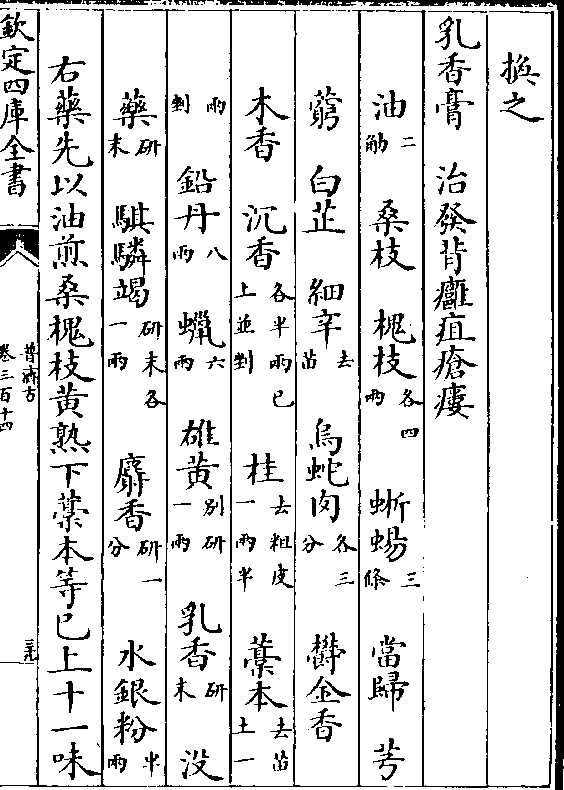 換之
乳香膏 治發背癰疽瘡瘻
油二觔 桑枝 槐枝各四兩 蜥蜴三條 當歸 芎
藭 白芷 細辛去苗 烏蛇肉各三分 鬱金香
木香 沉香各半兩已上並剉 桂去粗皮一兩半 藁本去苗土一
兩剉 鉛丹八兩 蠟六兩 雄黄别研一兩 乳香研末 没
藥研末 騏驎竭研末各一兩 麝香研一分 水銀粉半兩
右藥先以油煎桑槐枝黄熟下藁本等已上十一味
欽定四庫全書
普濟方
卷三百十四